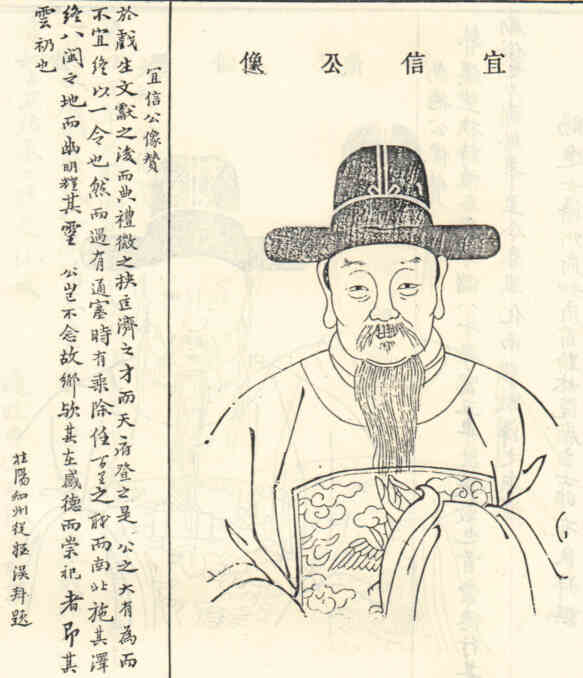 宜信公像
宜信公像贊
於戲生文獻之後而典禮微之匡濟之才而天府登之是 公之大有為而
不宜終以一令也然而遇有通塞時有乘除任百里之而南北施其澤
終八閩之地而幽明耀其靈 公豈不念故鄉歟其在感德而崇祀者即其
雲礽也
桂陽知州從拜題